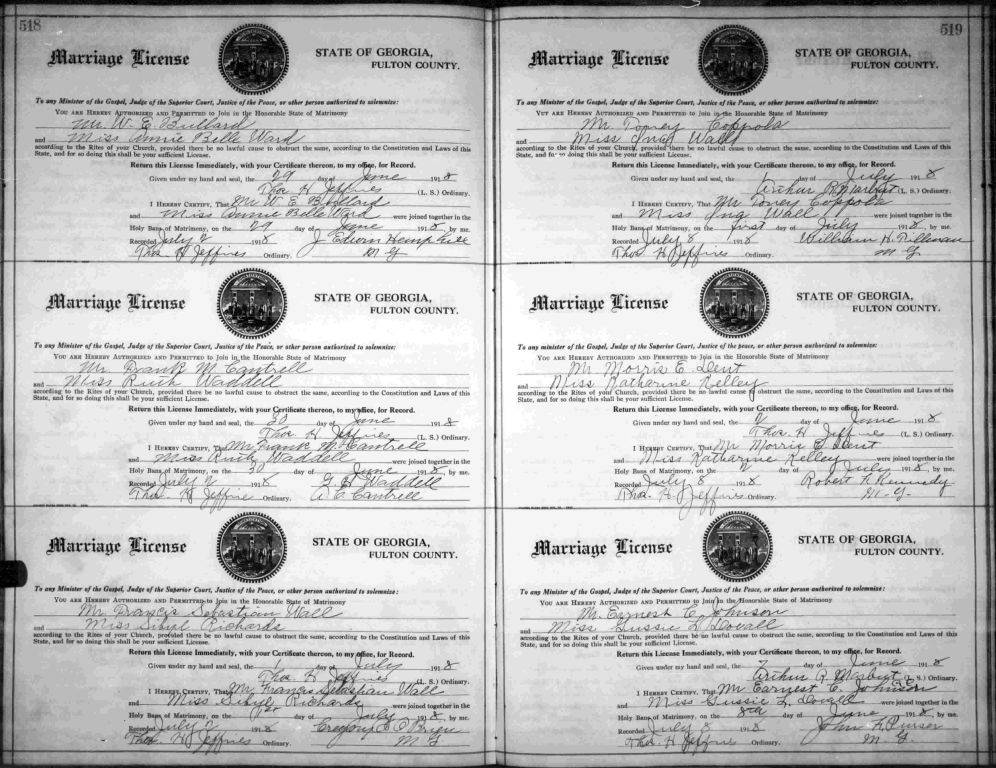 518
Marriage License
STATE OF GEORGIA,
FULTON COUNTY.
To any Minister of the Gospel, Judge of the Superior Court, Justice of the Peace, or other person authorized to solemnize:
YOU ARE HEREBY AUTHORIZED AND PERMITTED to Join in the Honorable State of Matrimony
Mr. W. E. Bullard
and Miss Annie Belle Ward
according to the Rites of your Church, provided there be no lawful cause to obstruct the same, according to the Constitution and Laws of this
State, and for so doing this shall be your sufficient License.
Return this License Immediately, with your Certificate thereon, to my office, for Record.
Given under my hand and seal, the 29 day of June 1918
Thos H Jeffries (L. S.) Ordinary.
I HEREBY CERTIFY, That Mr W E Bullard
and Miss Annie Belle Ward were joined together in the
Holy Bans of Matrimony, on the 29 day of June 1918, by me.
Recorded July 2 1918 J Edwin Hemphill
Thos H Jeffries Ordinary. M G
Marriage License
STATE OF GEORGIA,
FULTON COUNTY.
To any Minister of the Gospel, Judge of the Superior Court, Justice of the Peace, or other person authorized to solemnize:
YOU ARE HEREBY AUTHORIZED AND PERMITTED to Join in the Honorable State of Matrimony
Mr. Frank M Cantrell
and Miss Ruth Waddell
according to the Rites of your Church, provided there be no lawful cause to obstruct the same, according to the Constitution and Laws of this
State, and for so doing this shall be your sufficient License.
Return this License Immediately, with your Certificate thereon, to my office, for Record.
Given under my hand and seal, the 30 day of June 1918
Thos H Jeffries (L. S.) Ordinary.
I HEREBY CERTIFY, That Mr Frank M Cantrell
and Miss Ruth Waddell were joined together in the
Holy Bans of Matrimony, on the 30 day of June 1918, by me.
Recorded July 2 1918 G H Waddell
Thos H Jeffries Ordinary. A C Cantrell
Marriage License
STATE OF GEORGIA,
FULTON COUNTY.
To any Minister of the Gospel, Judge of the Superior Court, Justice of the Peace, or other person authorized to solemnize:
YOU ARE HEREBY AUTHORIZED AND PERMITTED to Join in the Honorable State of Matrimony
Mr Francis Sebastian Wall
and Miss Sibyl Richards
according to the Rites of your Church, provided there be no lawful cause to obstruct the same, according to the Constitution and Laws of this
State, and for so doing this shall be your sufficient License.
Return this License Immediately, with your Certificate thereon, to my office, for Record.
Given under my hand and seal, the 1 day of July 1918
Thos H Jeffries (L. S.) Ordinary.
I HEREBY CERTIFY, That Mr Francis Sebastian Wall
and Miss Sibyl Richards were joined together in the
Holy Bans of Matrimony, on the 1st day of July 1918, by me.
Recorded July 2 1918 O'Brien
Thos H Jeffries Ordinary. M G
519
Marriage License
STATE OF GEORGIA,
FULTON COUNTY.
To any Minister of the Gospel, Judge of the Superior Court, Justice of the Peace, or other person authorized to solemnize:
YUT ARE HEREBY AUTHORIZED AND PERMITTED to Join in the Honorable State of Matrimony
Mr Toney Coppola
and Miss Ina Wall
according to the Rites of your Church, provided there be no lawful cause to obstruct the same, according to the Constitution and Laws of this
State, and for so doing this shall be your sufficient License.
Return this License Immediately, with your Certificate thereon, to my office, for Record.
Given under my hand and seal, the 1 day of July 1918
Arthur R Marbut (L. S.) Ordinary.
I HEREBY CERTIFY, That Mr Toney Coppola
and Miss Ina Wall were joined together in the
Holy Bans of Matrimony, on the first day of July 1918, by me.
Recorded July 8 1918 William H.
Thos H Jeffries Ordinary. M G
Marriage License
STATE OF GEORGIA,
FULTON COUNTY.
To any minister of the Gospel, Judge of the Superior Court, Justice of the peace, or other person authorized to solemnize:
YOU ARE HEREBY AUTHORIZED AND PERMITTED to Join in the Honorable State of Matrimony
Mr Morris E. Dent
and Miss Katherine Kelley
according to the Rites of your Church, provided there be no lawful cause to obstruct the same, according to the Constitution and Laws of this
State, and for so doing this shall be your sufficient License.
Return this License Immediately, with your Certificate thereon, to my office, for Record.
Given under my hand and seal, the 2 day of June 1918
Thos. H Jeffries (L. S.) Ordinary.
I HEREBY CERTIFY, That Mr Morris E Dent
and Miss Katharine Kelley were joined together in the
Holy Bans of Matrimony, on the 2 day of July 1918, by me.
Recorded July 8 1918 Robert F. Kennedy
Thos. H Jeffries Ordinary. M. G.
Marriage License
STATE OF GEORGIA,
FULTON COUNTY.
To any Minister of the Gospel, Judge of the Superior Court, Justice of the Peace, or other person authorized to solemnize:
YOU ARE HEREBY AUTHORIZED AND PERMITTED to Join in the Honorable State of Matrimony
Mr Earnest C Johnson
and Miss Gussie L Lovall
according to the Rites of your Church, provided there be no lawful cause to obstruct the same, according to the Constitution and Laws of this
State, and for so doing this shall be your sufficient License.
Return this License Immediately, with your Certificate thereon, to my office, for Record.
Given under my hand and seal, the 7 day of June 1918
Arthur R Marbut (L. S.) Ordinary.
I HEREBY CERTIFY, That Mr Earnest C Johnson
and Miss Gussie L Lovall were joined together in the
Holy Bans of Matrimony, on the 8th day of June 1918, by me.
Recorded July 8 1918 John F. Purser
Thos H Jeffries Ordinary. M. G.